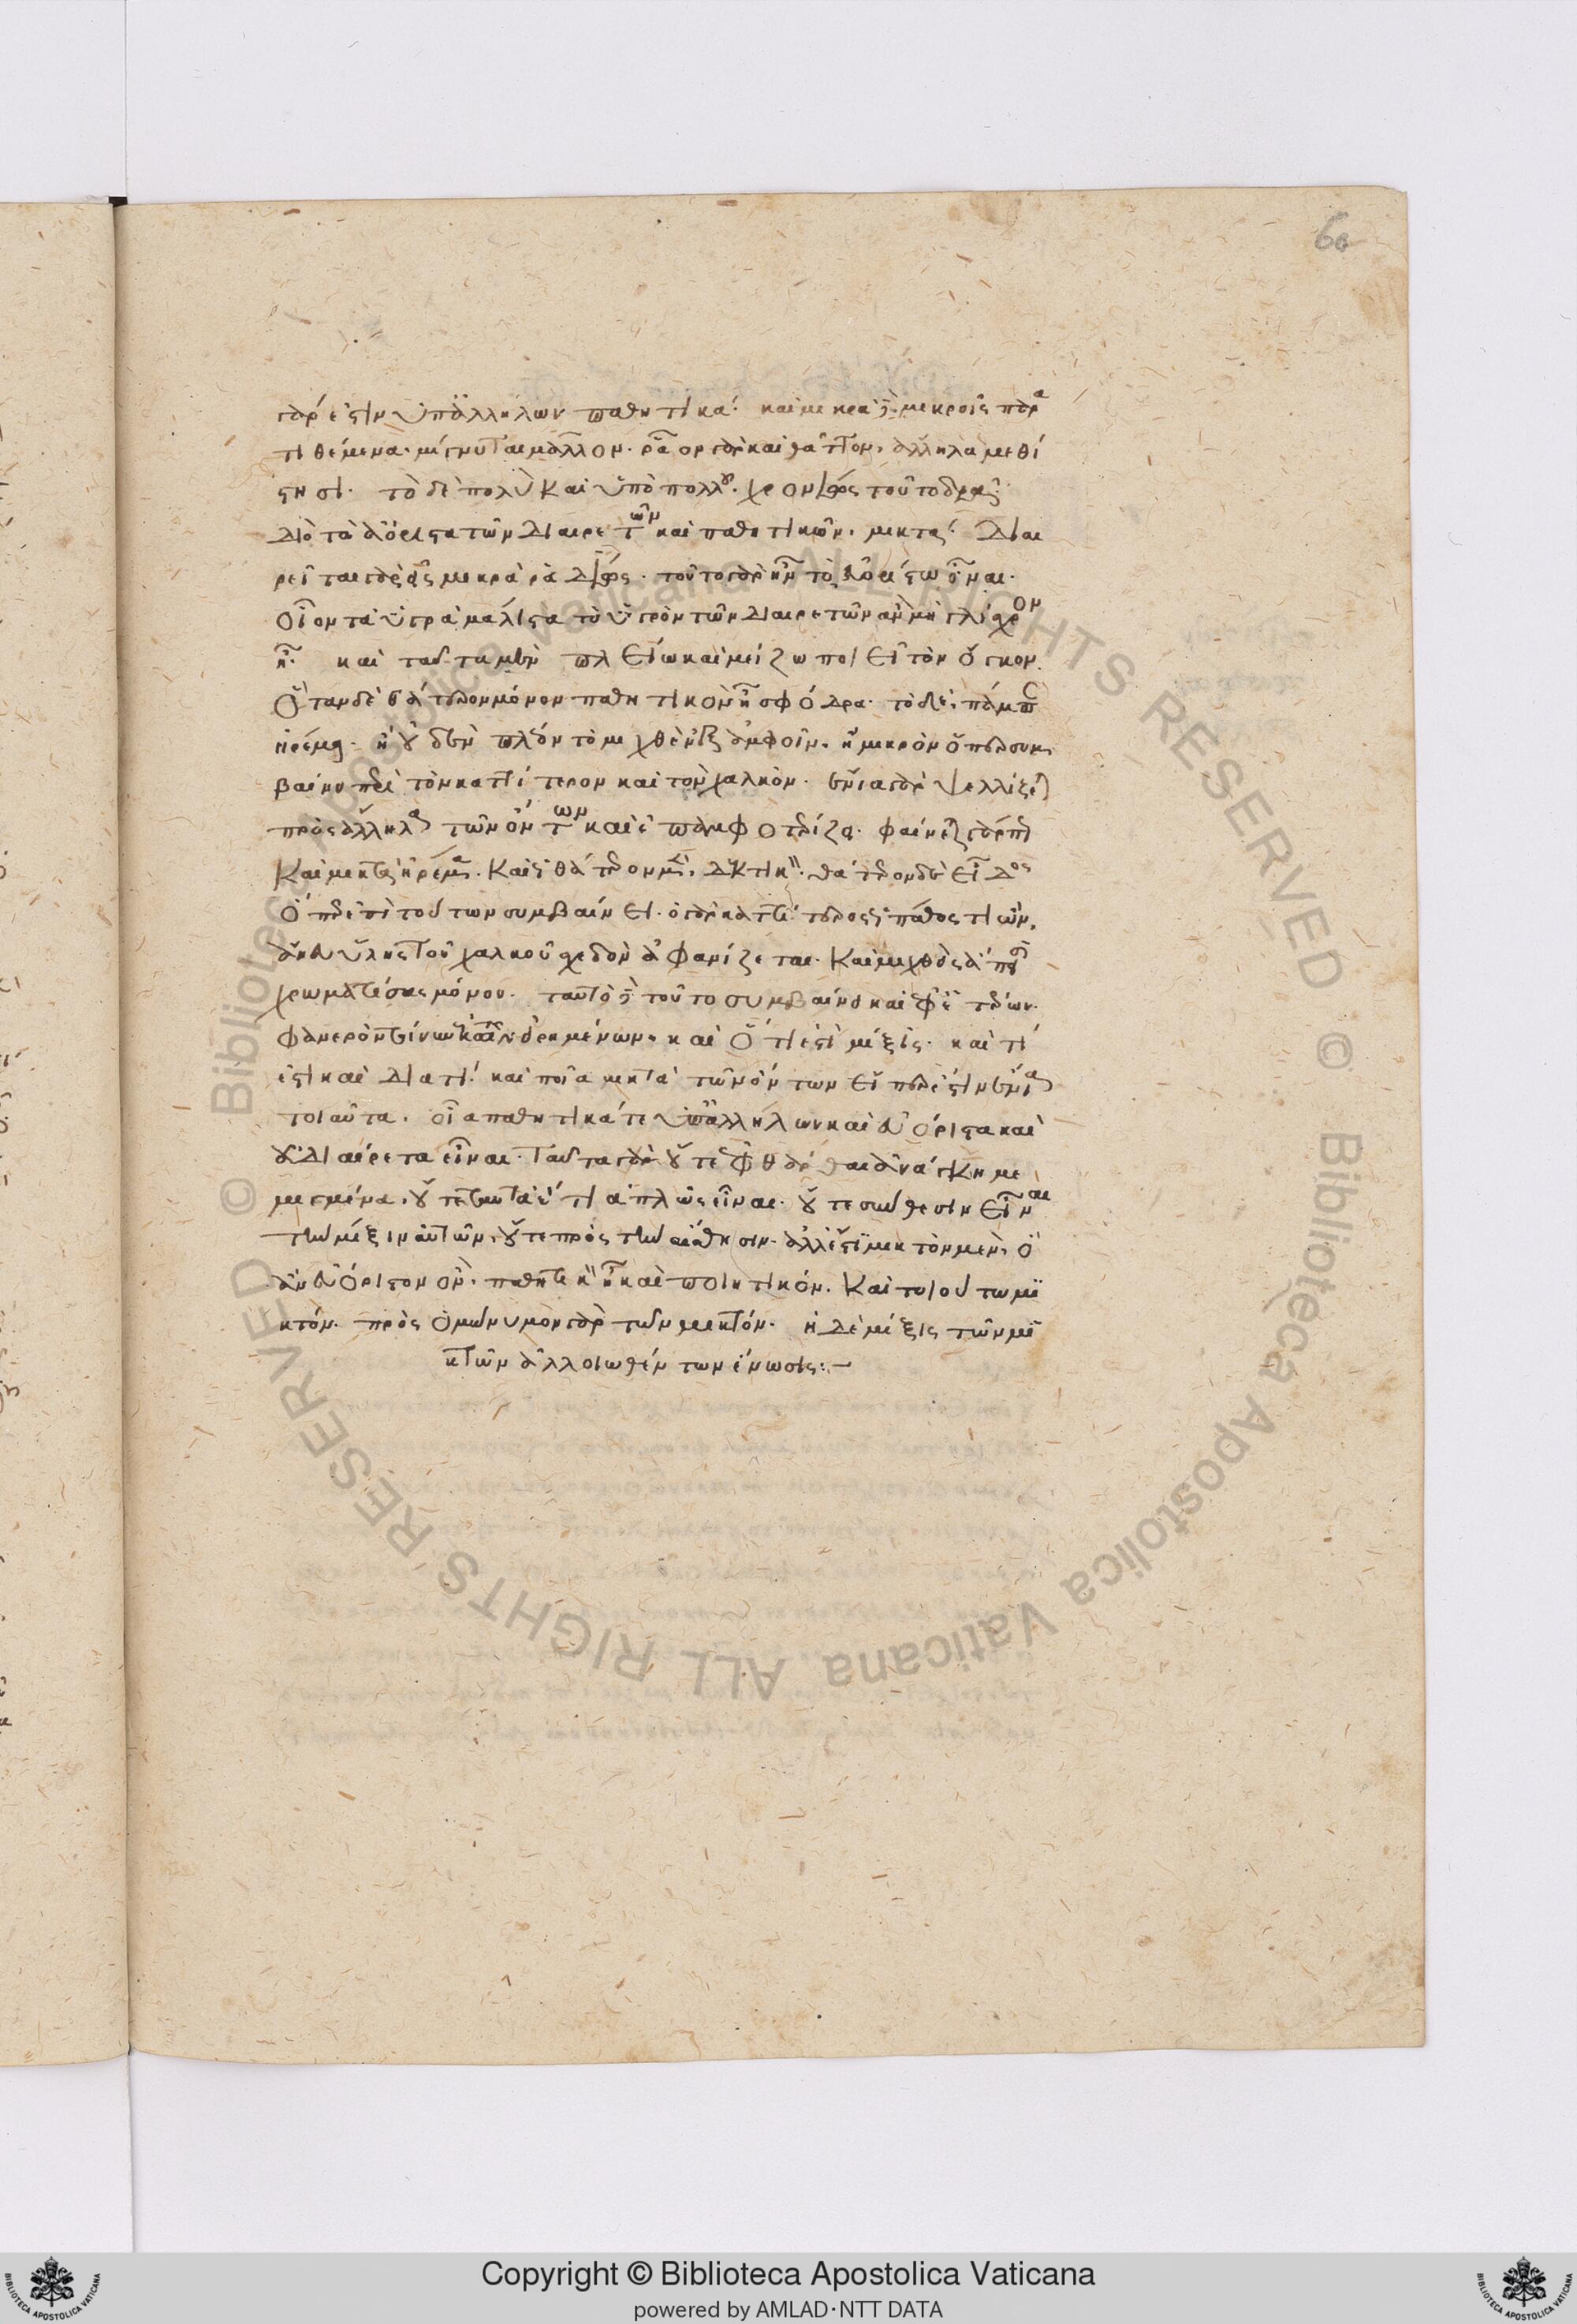 γάρ ἐστιν ὑπ' ἀλλήλων παθητικά· καὶ μικρὰ δὲ μικροῖς παρα
τιθέμενα μίγνυται μᾶλλον· ῥᾶον γὰρ καὶ θᾶττον ἄλληλα μεθί
στησι· τὸ δὲ πολὺ καὶ ὑπὸ πολλοῦ χρονίως τοῦτο δρᾷ·
Διὸ τὰ εὐόριστα τῶν διαιρετῶν καὶ παθητικῶν, μικτά· Διαι
ρεῖται γὰρ εἰς μικρὰ ῥαδίως· τοῦτο γὰρ ἦν τὸ εὐορίστω εἶναι·
οἷον τὰ ὑγρὰ μάλιστα τὸ ὑγρὸν τῶν διαιρετῶν ἂν μὴ γλίσχρον
ἦ· καὶ ταῦτα μὲν πλείω καὶ μείζω ποιεῖ τὸν ὄγκον·
Ὅταν δὲ θάτερον μόνον παθητικὸν ἦ σφόδρα· τὸ δὲ, πάμπαν
ἠρέμα· ἢ οὐδὲν πλέον τὸ μιχθὲν ἐξ ἀμφοῖν, ἢ μικρὸν ὅπερ συμ
βαίνει περὶ τὸν καττίτερον καὶ τὸν χαλκόν· ἔνια γὰρ ψελλίζεται
πρὸς ἄλληλα τῶν ὄντων καὶ ἐπαμφοτερίζει· φαίνεται γάρ πως
καὶ μικτὰ ἠρέμα· καὶ ὡς θάτερον μὲν, δεκτικόν· θάτερον δὲ εἶδος
ὅπερ ἐπὶ τούτων συμβαίνει· ὁ γὰρ καττίτερος ὡς πάθος τι ὢν,
ἄνευ ὕλης τοῦ χαλκοῦ σχεδὸν ἀφανίζεται· καὶ μιχθεὶς ἄπεισι
χρωματίσας μόνον· ταὐτὸ δὲ τοῦτο συμβαίνει καὶ ἐφ' ἑτέρων·
φανερὸν τοίνυν ἐκ τῶν εἰρημένων, καὶ ὅτι ἐστὶ μίξις· καὶ τί
ἐστι καὶ διὰ τί· καὶ ποῖα μικτὰ τῶν ὄντων εἴπερ ἐστὶν ἔνια
τοιαῦτα, οἷα παθητικά τε ὑπ' ἀλλήλων καὶ εὐόριστα καὶ
εὐδιαίρετα εἶναι· ταῦτα γὰρ οὔτε ἐφθάρθαι ἀνάγκη με
μιγμένα, οὔτε ταὐτὰ ἔτι ἁπλῶς εἶναι· οὔτε σύνθεσιν εἶναι
τὴν μίξιν αὐτῶν, οὔτε πρὸς τὴν αἴσθησιν· ἀλλ' ἔστι μικτὸν μὲν, ὃ
ἂν εὐόριστον ὂν, παθητικὸν ἦ καὶ ποιητικόν· καὶ τοιούτω μι
κτόν· πρὸς ὁμώνυμον γὰρ τὸ μικτόν· ἡ δὲ μίξις τῶν μι
κτῶν ἀλλοιωθέντων ἕνωσις:—
60
Copyright © Biblioteca Apostolica Vaticana
powered by AMLAD·NTT DATA